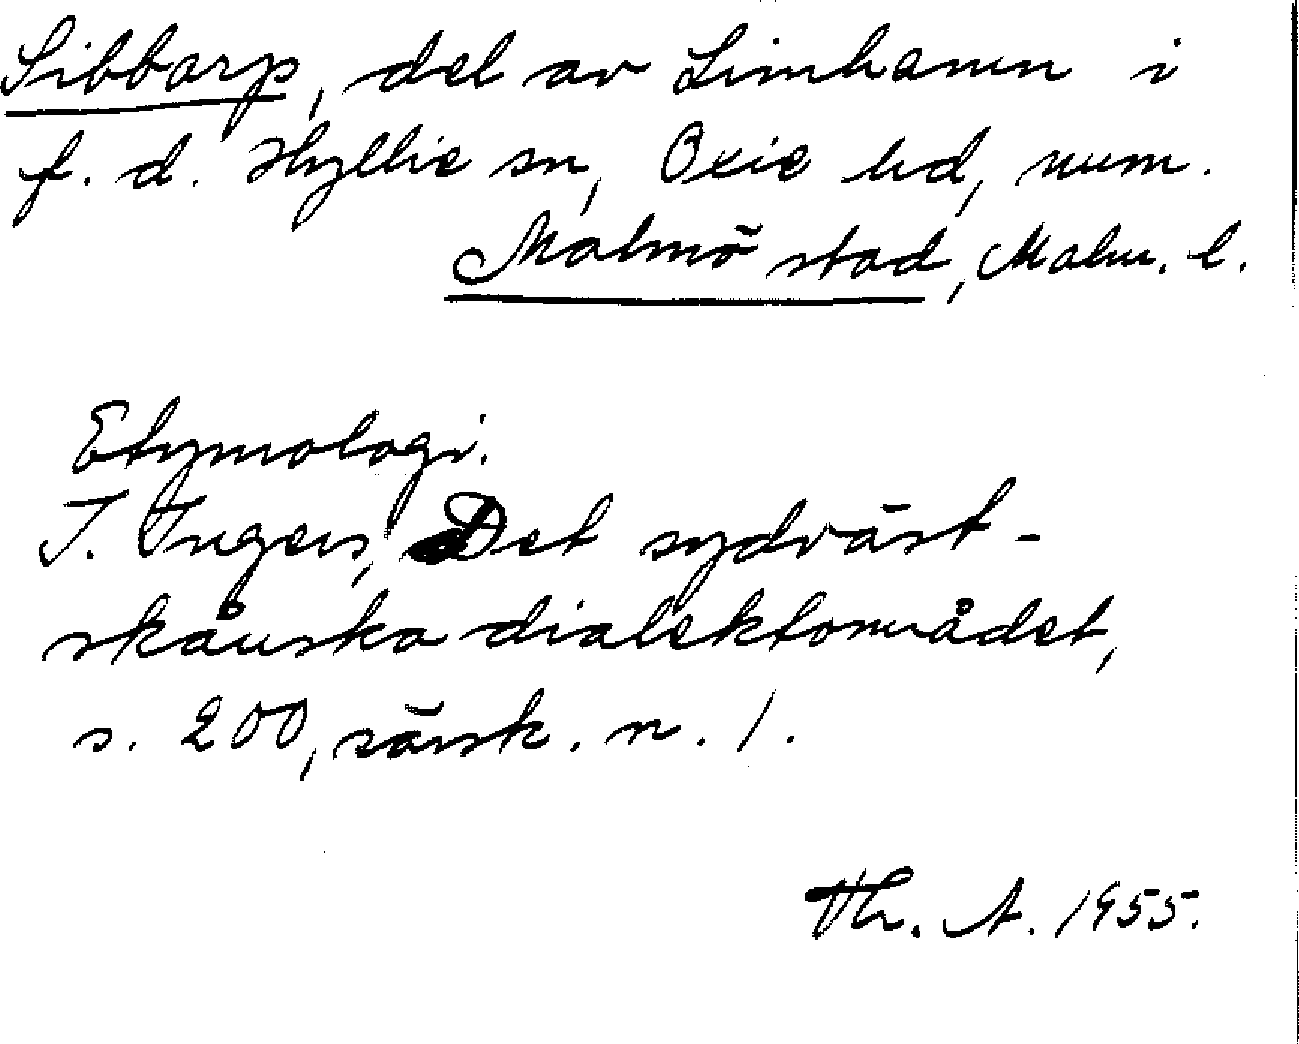 Sibbarp, del av Limhamn i
f. d. Hyllie sn, Oxie hd, num.
Malmö stad, Malm. l.
Etymologi.
I. Ingers, Det sydväst-
skånska dialektområdet,
s. 200, särsk. n. 1.
Th. A. 1955.